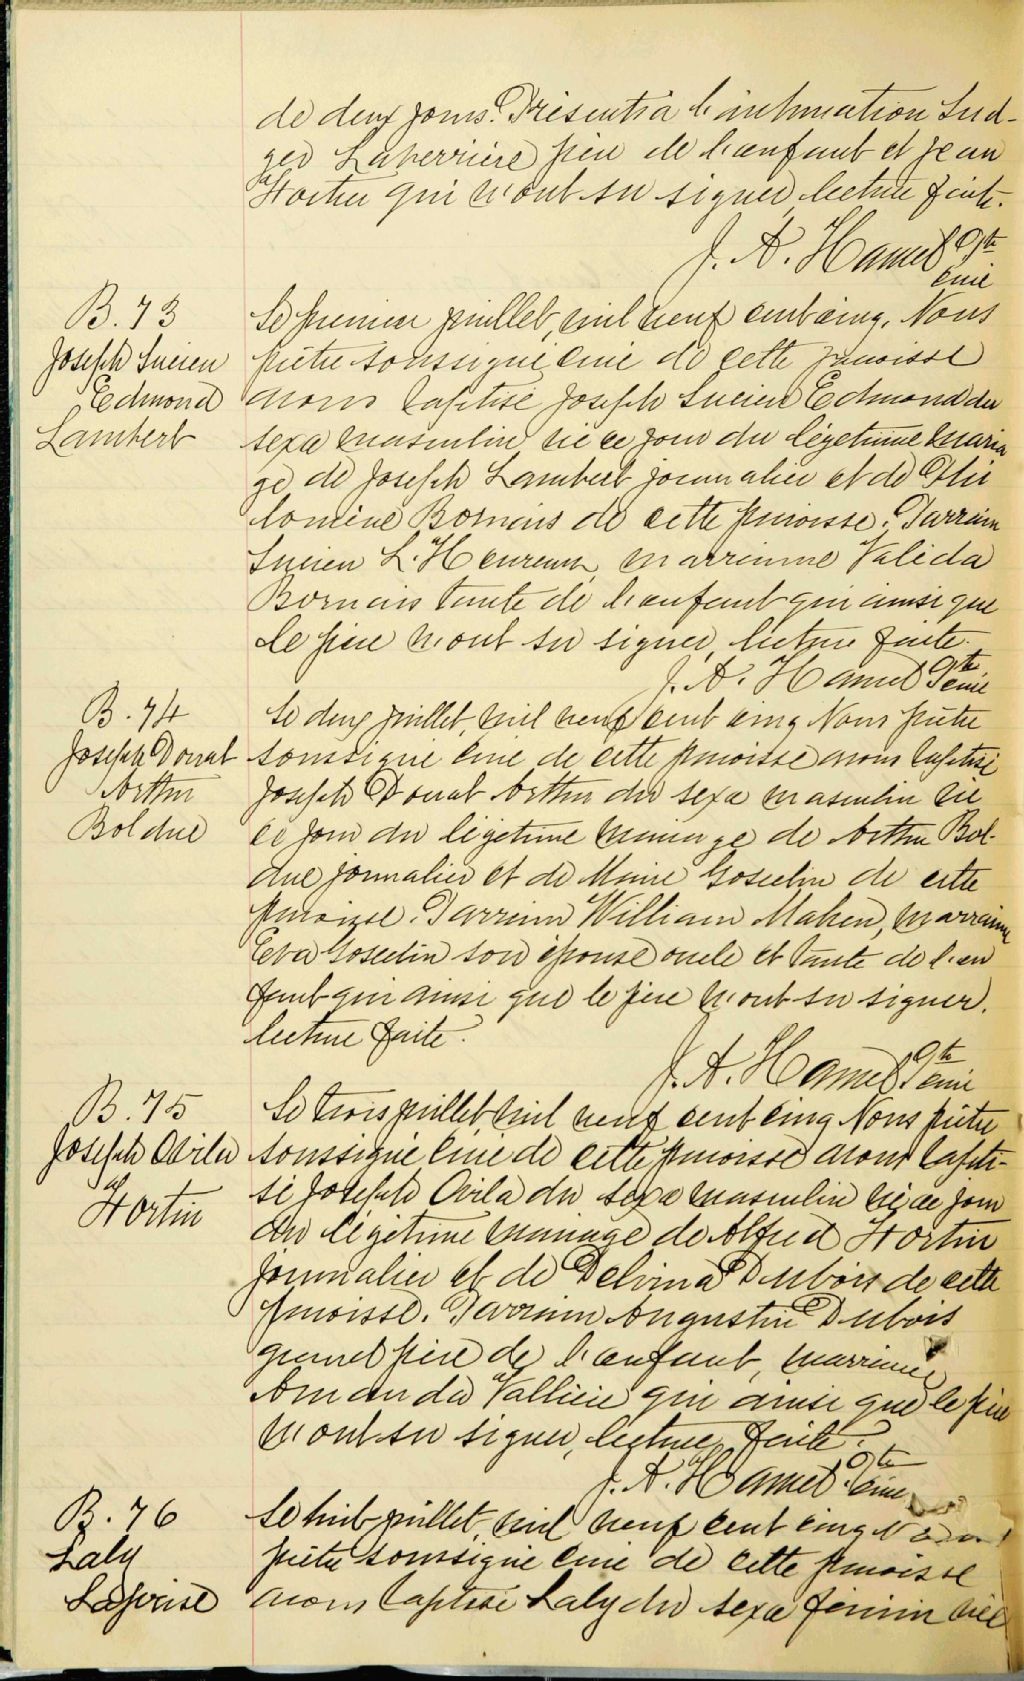 de deux jours. Présent à l'inhumation Lud-
ger Laverrière père de l'enfant et Jean
Fortin qui n'ont su signer, lecture faite.
J. A. Hamel Ptre
curé
B. 73
Joseph Lucien
Edmond
Lambert
Le premier juillet, mil neuf cent cinq, Nous
prêtre soussigné curé de cette paroisse
avons baptisé Joseph Lucien Edmond du
sexe masculin né ce jour du légetime maria
ge de Joseph Lambert journalier et de Phi
lomène Bornais de cette paroisse. Parrain
Lucien L'Heureux, marraine Valéda
Bornais tante de l'enfant qui ainsi que
le père n'ont su signer, lecture faite.
J. A. Hamel Ptre
curé
B. 74
Joseph Donat
Arthur
Bolduc
Le deux juillet, mil neuf cent cinq Nous prêtre
soussigné curé de cette paroisse avons baptisé
Joseph Donat Arthur du sexe masculin né
ce jour du légetime mariage de Arthur Bol-
duc journalier et de Marie Gosselin de cette
paroisse. Parrain William Maheu, marraine
Eva Gosselin son épouse oncle et tante de l'en
fant qui ainsi que le père n'ont su signer.
lecture faite.
J. A. Hamel Ptre
curé
B. 75
Joseph Avila
Fortin
Le trois juillet, mil neuf cent cinq Nous prêtre
soussigné curé de cette paroisse avons bapti-
sé Joseph Avila du sexe masculin né ce jour
du légetime mariage de Alfred Fortin
journalier et de Delvina Dubois de cette
paroisse. Parrain Augustin Dubois
grand père de l'enfant, marraine
Amanda Vallière qui ainsi que le père
n'ont su signer, lecture faite.
J. A. Hamel Ptre
curé
B. 76
Laly
Laprise
Le huit juillet, mil neuf cent cinq Nous
prêtre soussigné curé de cette paroisse
avons baptisé Laly du sexe féminin née